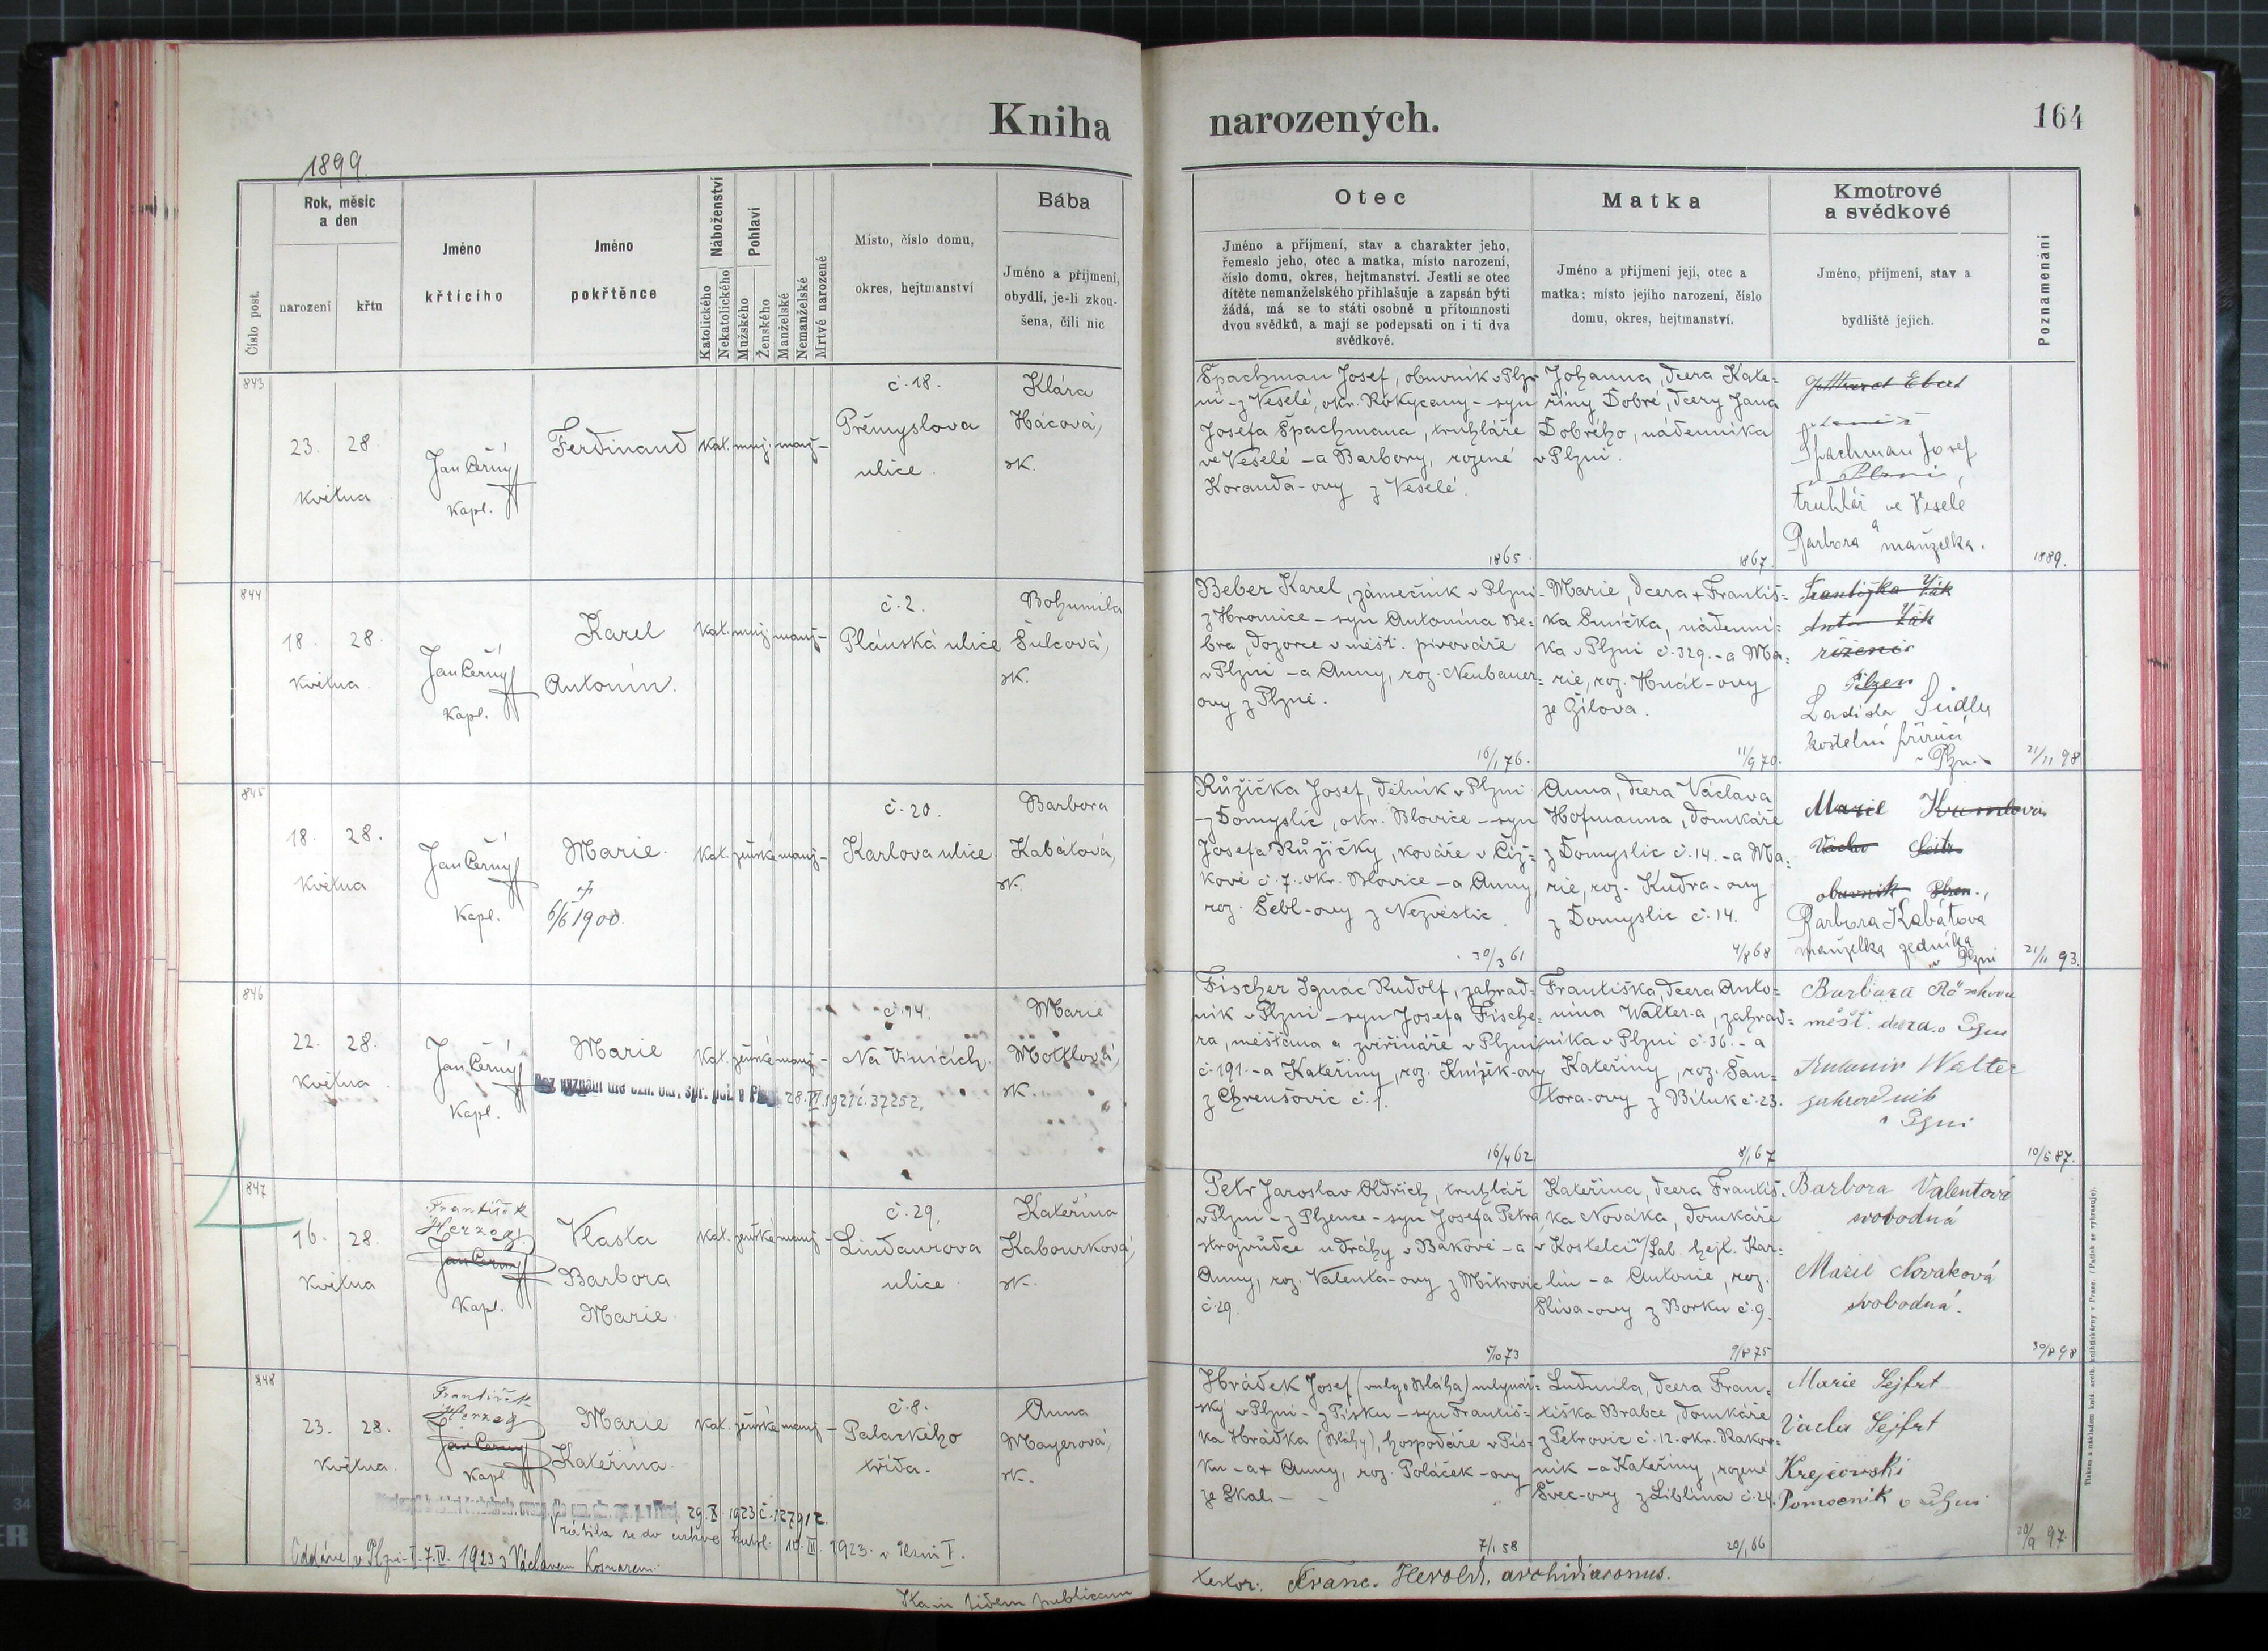 Kniha
narozených.
164
1899.
Číslo post.
Rok, měsíc
a den
narození
křtu
Jméno
křtícího
Jméno
pokřtěnce
Náboženství
Katolického
Nekatolického
Pohlaví
Mužského
Ženského
Manželské
Nemanželské
Mrtvě narozené
Místo, číslo domu,
okres, hejtmanství
Bába
Jméno a přijmení,
obydlí, je-li zkou-
šena, čili nic
Otec
Jméno a příjmení, stav a charakter jeho,
řemeslo jeho, otec a matka, místo narození,
číslo domu, okres, hejtmanství. Jestli se otec
dítěte nemanželského přihlašuje a zapsán býti
žádá, má se to státi osobně u přítomnosti
dvou svědků, a mají se podepsati on i ti dva
svědkové.
Matka
Jméno a přijmení její, otec a
matka; místo jejího narození, číslo
domu, okres, hejtmanství.
Kmotrové
a svědkové
Jméno, přijmení, stav a
bydliště jejich.
Poznamenání
843
23. 28.
května
Jan Černý
kapl.
Ferdinand
kat. muž. manž-
č. 18.
Přemyslova
ulice.
Klára
Hácová,
zk.
Špachman Josef, obuvník v Plz-
ni - z Veselé, okr. Rokycany - syn
Josefa Špachmana, truhláře
ve Veselé - a Barbory, rozené
Koranda-ovy z Veselé.
1865.
Johanna, dcera Kate-
řiny Dobré, dcery Jana
Dobrého, nádenníka
v Plzni.
1867.
Špachman Josef
truhlář ve Veselé
a
Barbora manželka.
1889.
844
18. 28.
května.
Jan Černý
kapl.
Karel
Antonín.
kat. muž. manž-
č. 2.
Plánská ulice
Bohumila
Šulcová,
zk.
Beber Karel, zámečník v Plzni-
z Hromice - syn Antonína Be-
bra, dozorce v měšť. pivováře
v Plzni - a Anny, roz. Neubauer-
ovy z Plzně.
16/1 76.
Marie, dcera + Františ-
ka Smíčka, nádenní-
ka v Plzni č. 329. - a Ma-
rie, roz. Hnát-ovy
ze Žilova.
11/9 70.
Františka Žák
Anton Žák
Pilzen
Ladislav Seidler
kostelní
v Plzni
21/11 98
845
18. 28.
května
Jan Černý
kapl.
Marie.
6/6 1900.
kat. ženské manž-
č. 20.
Karlova ulice
Barbora
Kabátová,
zk.
Růžička Josef, dělník v Plzni
- z Domyslic, okr. Blovice - syn
Josefa Růžičky, kováře v Čiž-
kově č. 7. okr. Blovice - a Anny,
roz. Šebl-ovy z Nezvěstic.
30/3 61
Anna, dcera Václava
Hofmanna, domkáře
z Domyslic č. 14. - a Ma-
rie, roz. Kudra-ovy
z Domyslic č. 14.
4/8 68
Marie
Václav
obuvník Plzen.
Barbora Kabátová
manželka zedníka
v Plzni
21/11 93.
846
22. 28.
května
Jan Černý
kapl.
Marie
kat. ženské manž-
28. VI. 1921 č. 37252.
č. 14.
Na Vinicích.
Marie
Mottlová,
zk.
Fischer Ignác Rudolf, zahrad-
ník v Plzni - syn Josefa Fische-
ra, měšťana a zvěřináře v Plzni
č. 191. - a Kateřiny, roz. Knížek-ovy
z Chrenšovic č. 1.
16/4 62
Františka, dcera Anto-
nína Walter-a, zahrad-
níka v Plzni č. 36. - a
Kateřiny, roz. Šan-
tora-ovy z Biluk č. 23.
8/1 67
Barbara
měšť. dcera v Plzni
Antonín Walter
zahradník
v Plzni
10/5 87.
847
16. 28.
května
František
Herzog
Jan Černý
kapl.
Vlasta
Barbora
Marie
kat. ženské manž-
č. 29.
Lindaurova
ulice
Kateřina
Kabourková,
zk.
Petr Jaroslav Oldřich, truhlář
v Plzni - z Plzence - syn Josefa Petra
strojvůdce u dráhy v Bakově - a
Anny, roz. Valenta-ovy z Mitrovic
č. 29.
Kateřina, dcera Františ-
ka Nováka, domkáře
v Kostelci n/Lab. hejt. Kar-
lín - a Antonie, roz.
Slíva-ovy z Borku č. 9.
9/8 75
Barbora Valentová
svobodná
Marie Nováková
svobodná.
30/8 98
848
23. 28.
května.
František
Herzog
Jan Černý
kapl
Marie
Kateřina.
kat. ženské manž-
č. 8.
Palackého
třída.
Anna
Mayerová,
zk.
Hrádek Josef (vulgo Bláha) mlynář-
ský v Plzni - z Písku - syn Františ-
ka Hrádka (Bláhy), hospodáře v Pís-
ku - a + Anny, roz. Poláček-ovy
ze Skal -
7/1 58
Ludmila, dcera Fran-
tiška Brabce, domkáře
z Petrovic č. 12. okr. Rakov-
ník - a Kateřiny, rozené
Švec-ovy z Liblína č. 24.
20/1 66
Marie Sejfrt
Václav Sejfrt
Krejčovski
Pomocník v Plzni
20/9 97.
29. X. 1923 č. 127912.
Vrátila se do církve katol. 10. II. 1923. v Plzni I.
Oddána v Plzni-I. 7. IV. 1923 s Václavem Kosnarem.
Ita in fidem publicam
testor: Franc. Herold, archidiaconus.